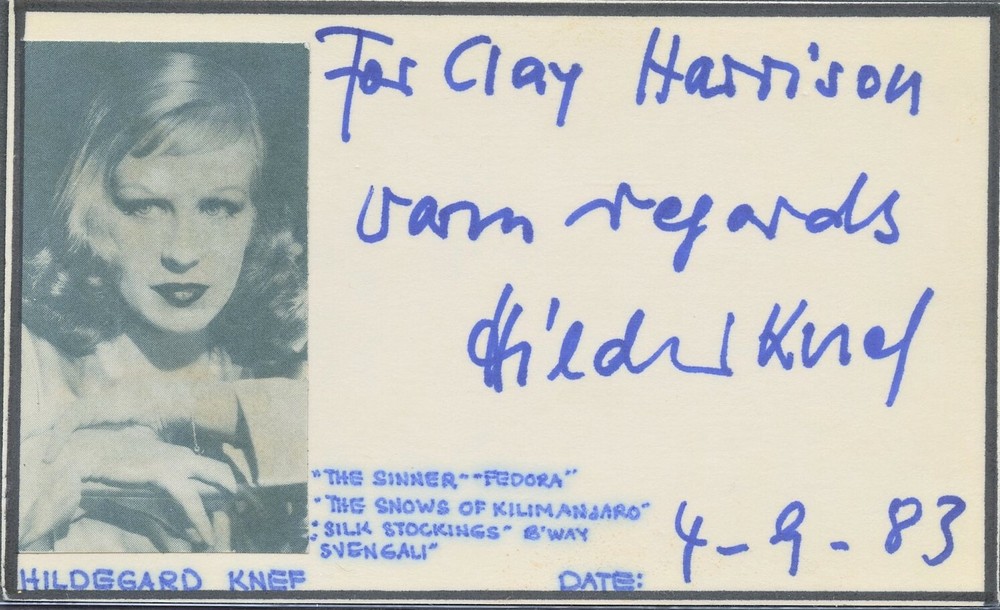 For Clay Harrison
warm regards
Hildegard Knef
"THE SINNER" "FEDORA"
"THE SNOWS OF KILIMANJARO"
"SILK STOCKINGS" B'WAY
SVENGALI"
HILDEGARD KNEF
DATE: 4-9-83